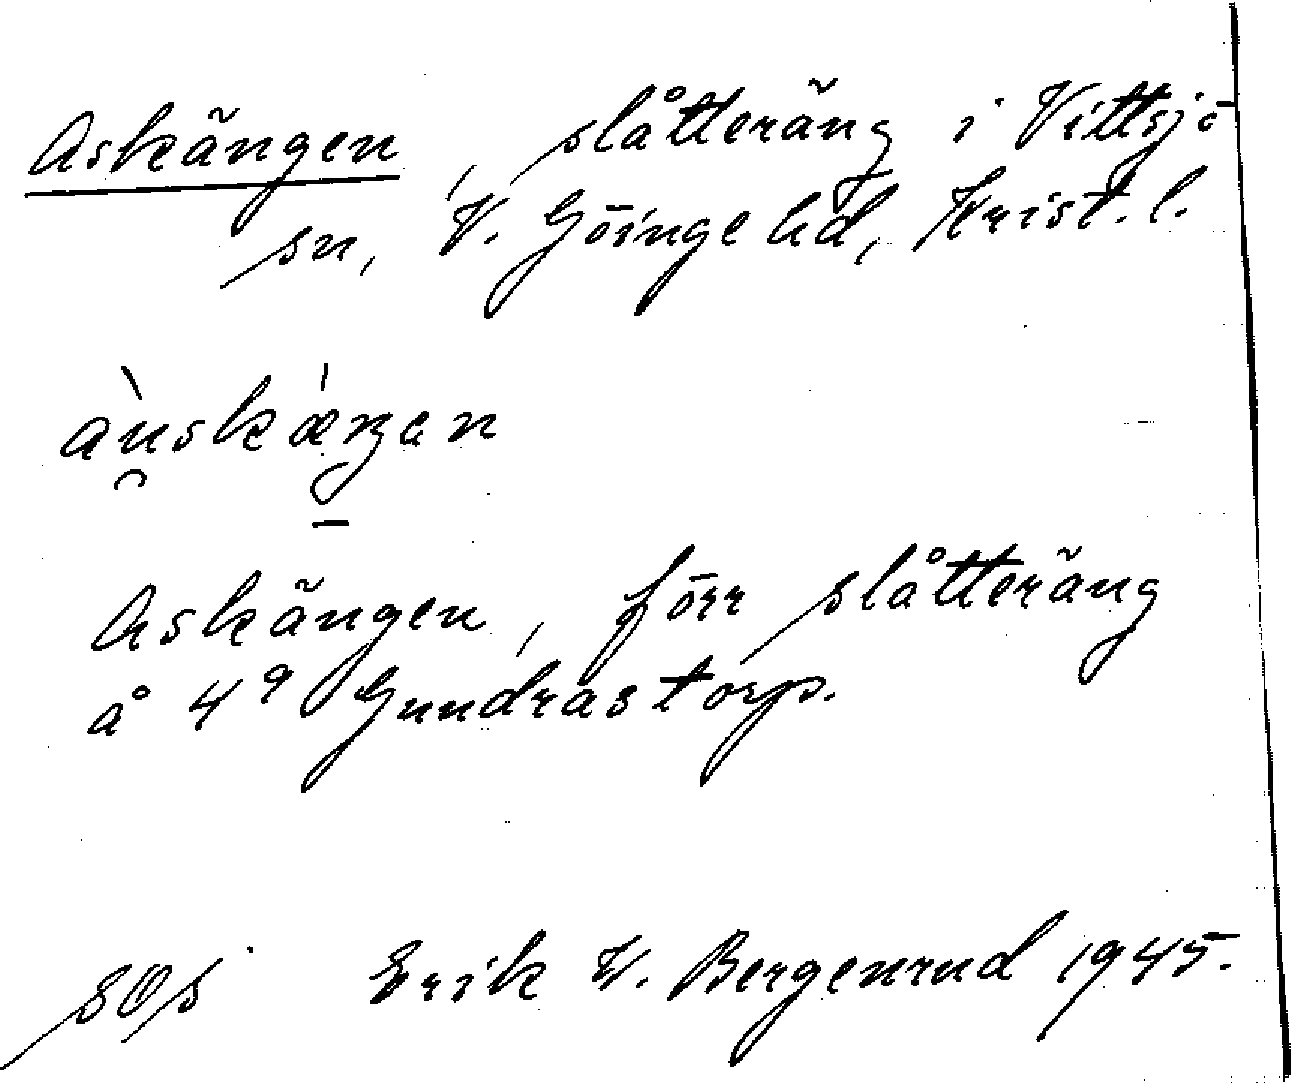 Askängen, slåtteräng i Vittsjö
sn, V. Göinge hd, Krist. l.
àu̯skǽŋən
Askängen, förr slåtteräng
å 4⁹ Gundrastorp.
sOs Erik W. Bergenrud 1945.